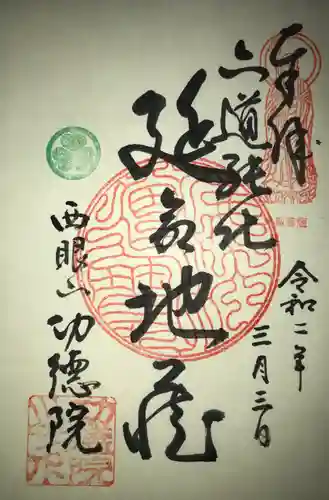 奉拝
六道能化
令和二年
三月三日
延命地蔵
西眼山 功徳院